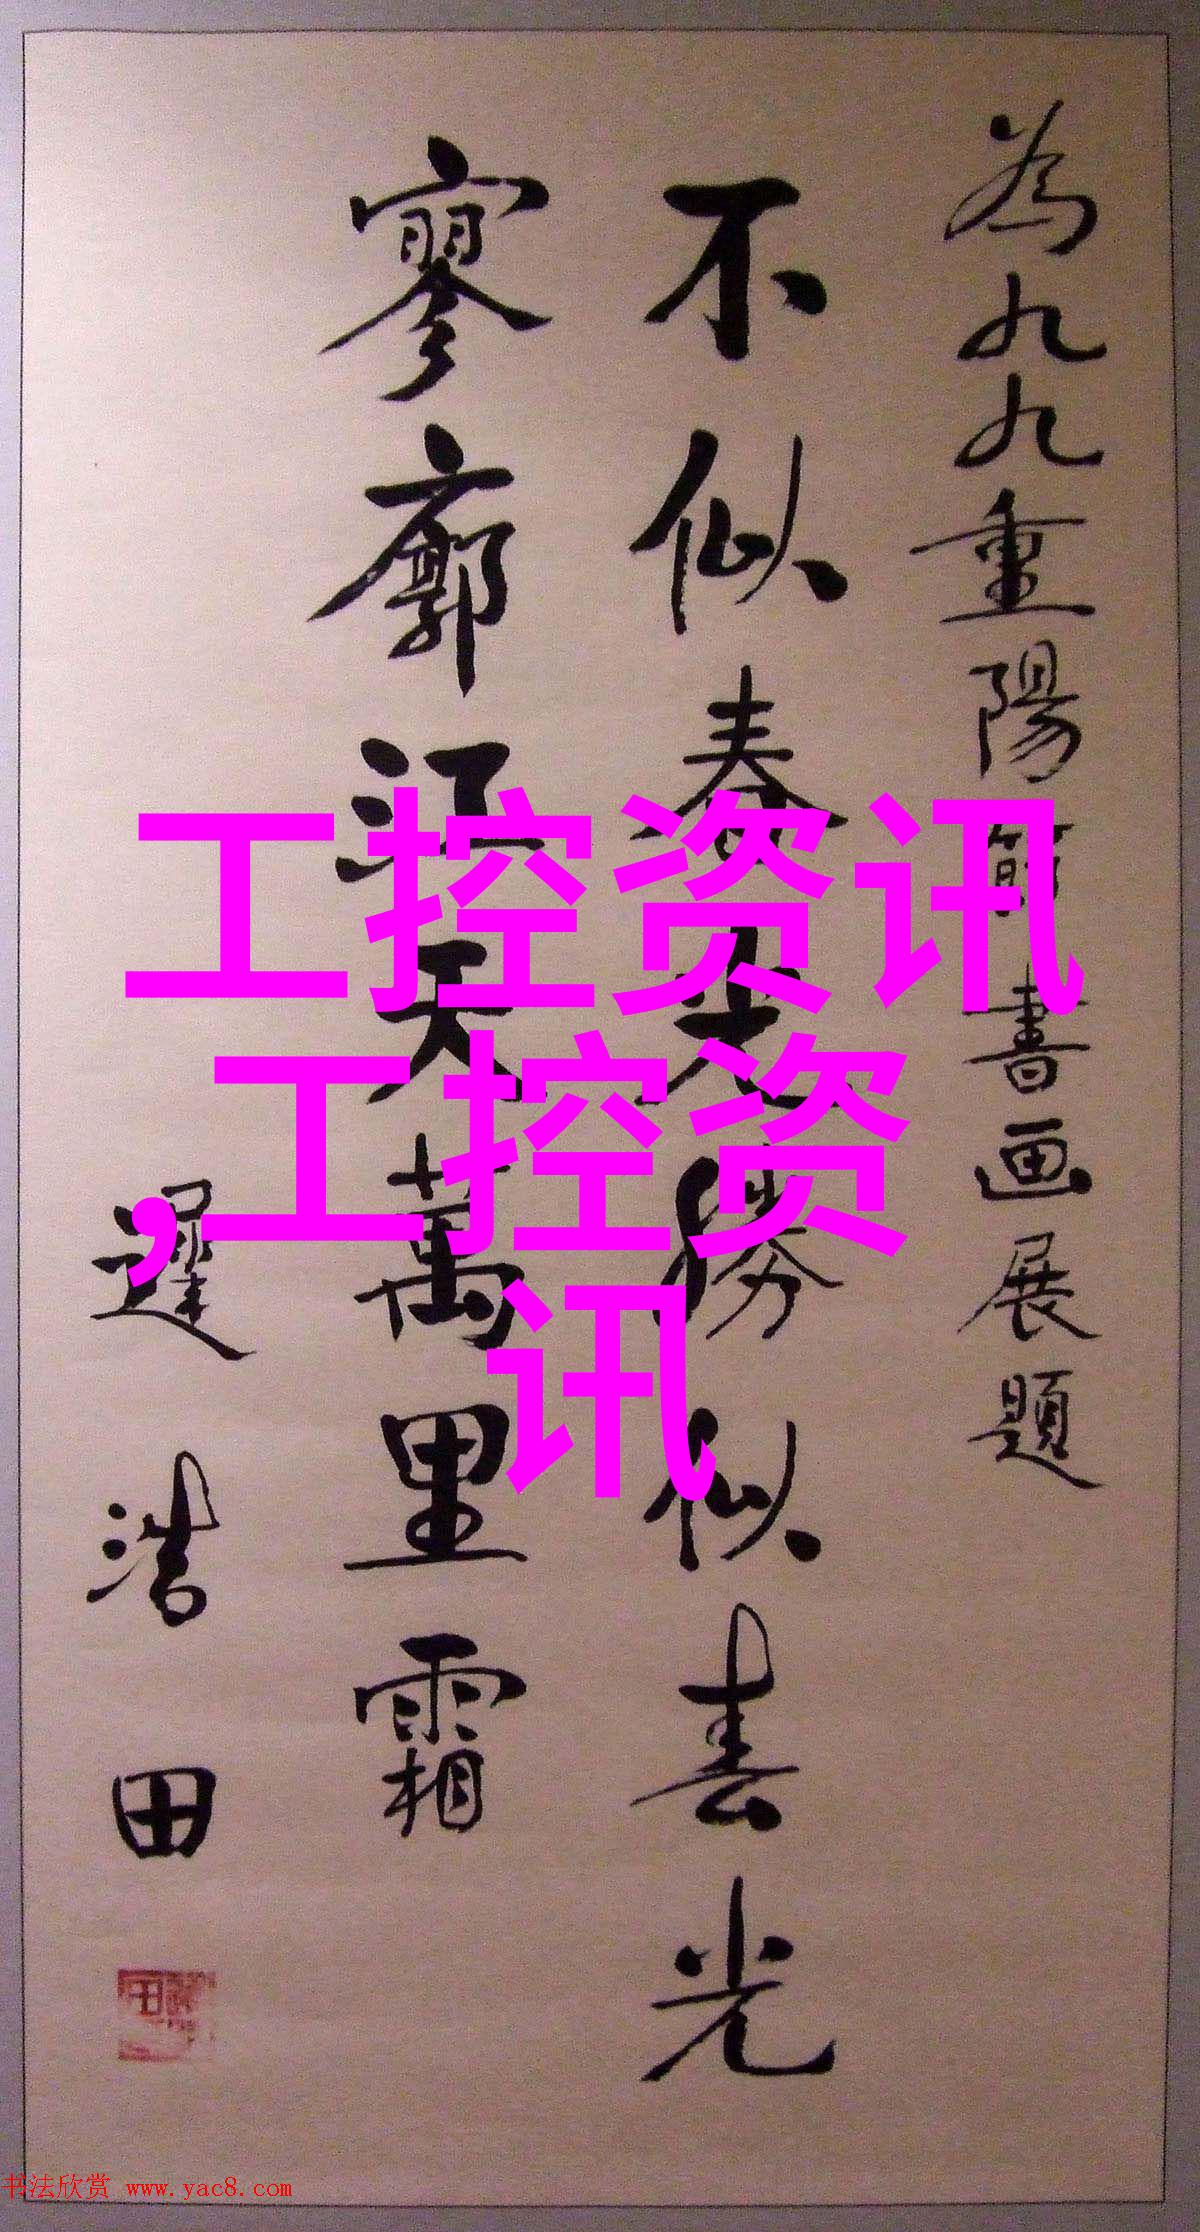 為九九重陽節書画展題
不似春光勝似春光
寥廓江天萬里霜
遲浩田
工控资讯
,工控资
讯
书法欣赏 www.yac8.com